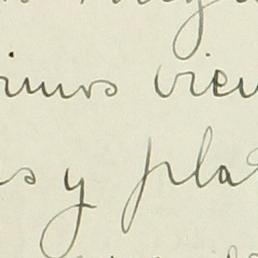 rimos vien
s y pla